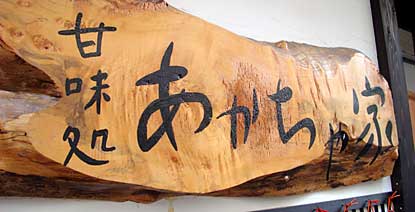 甘味処
あかちゃ家